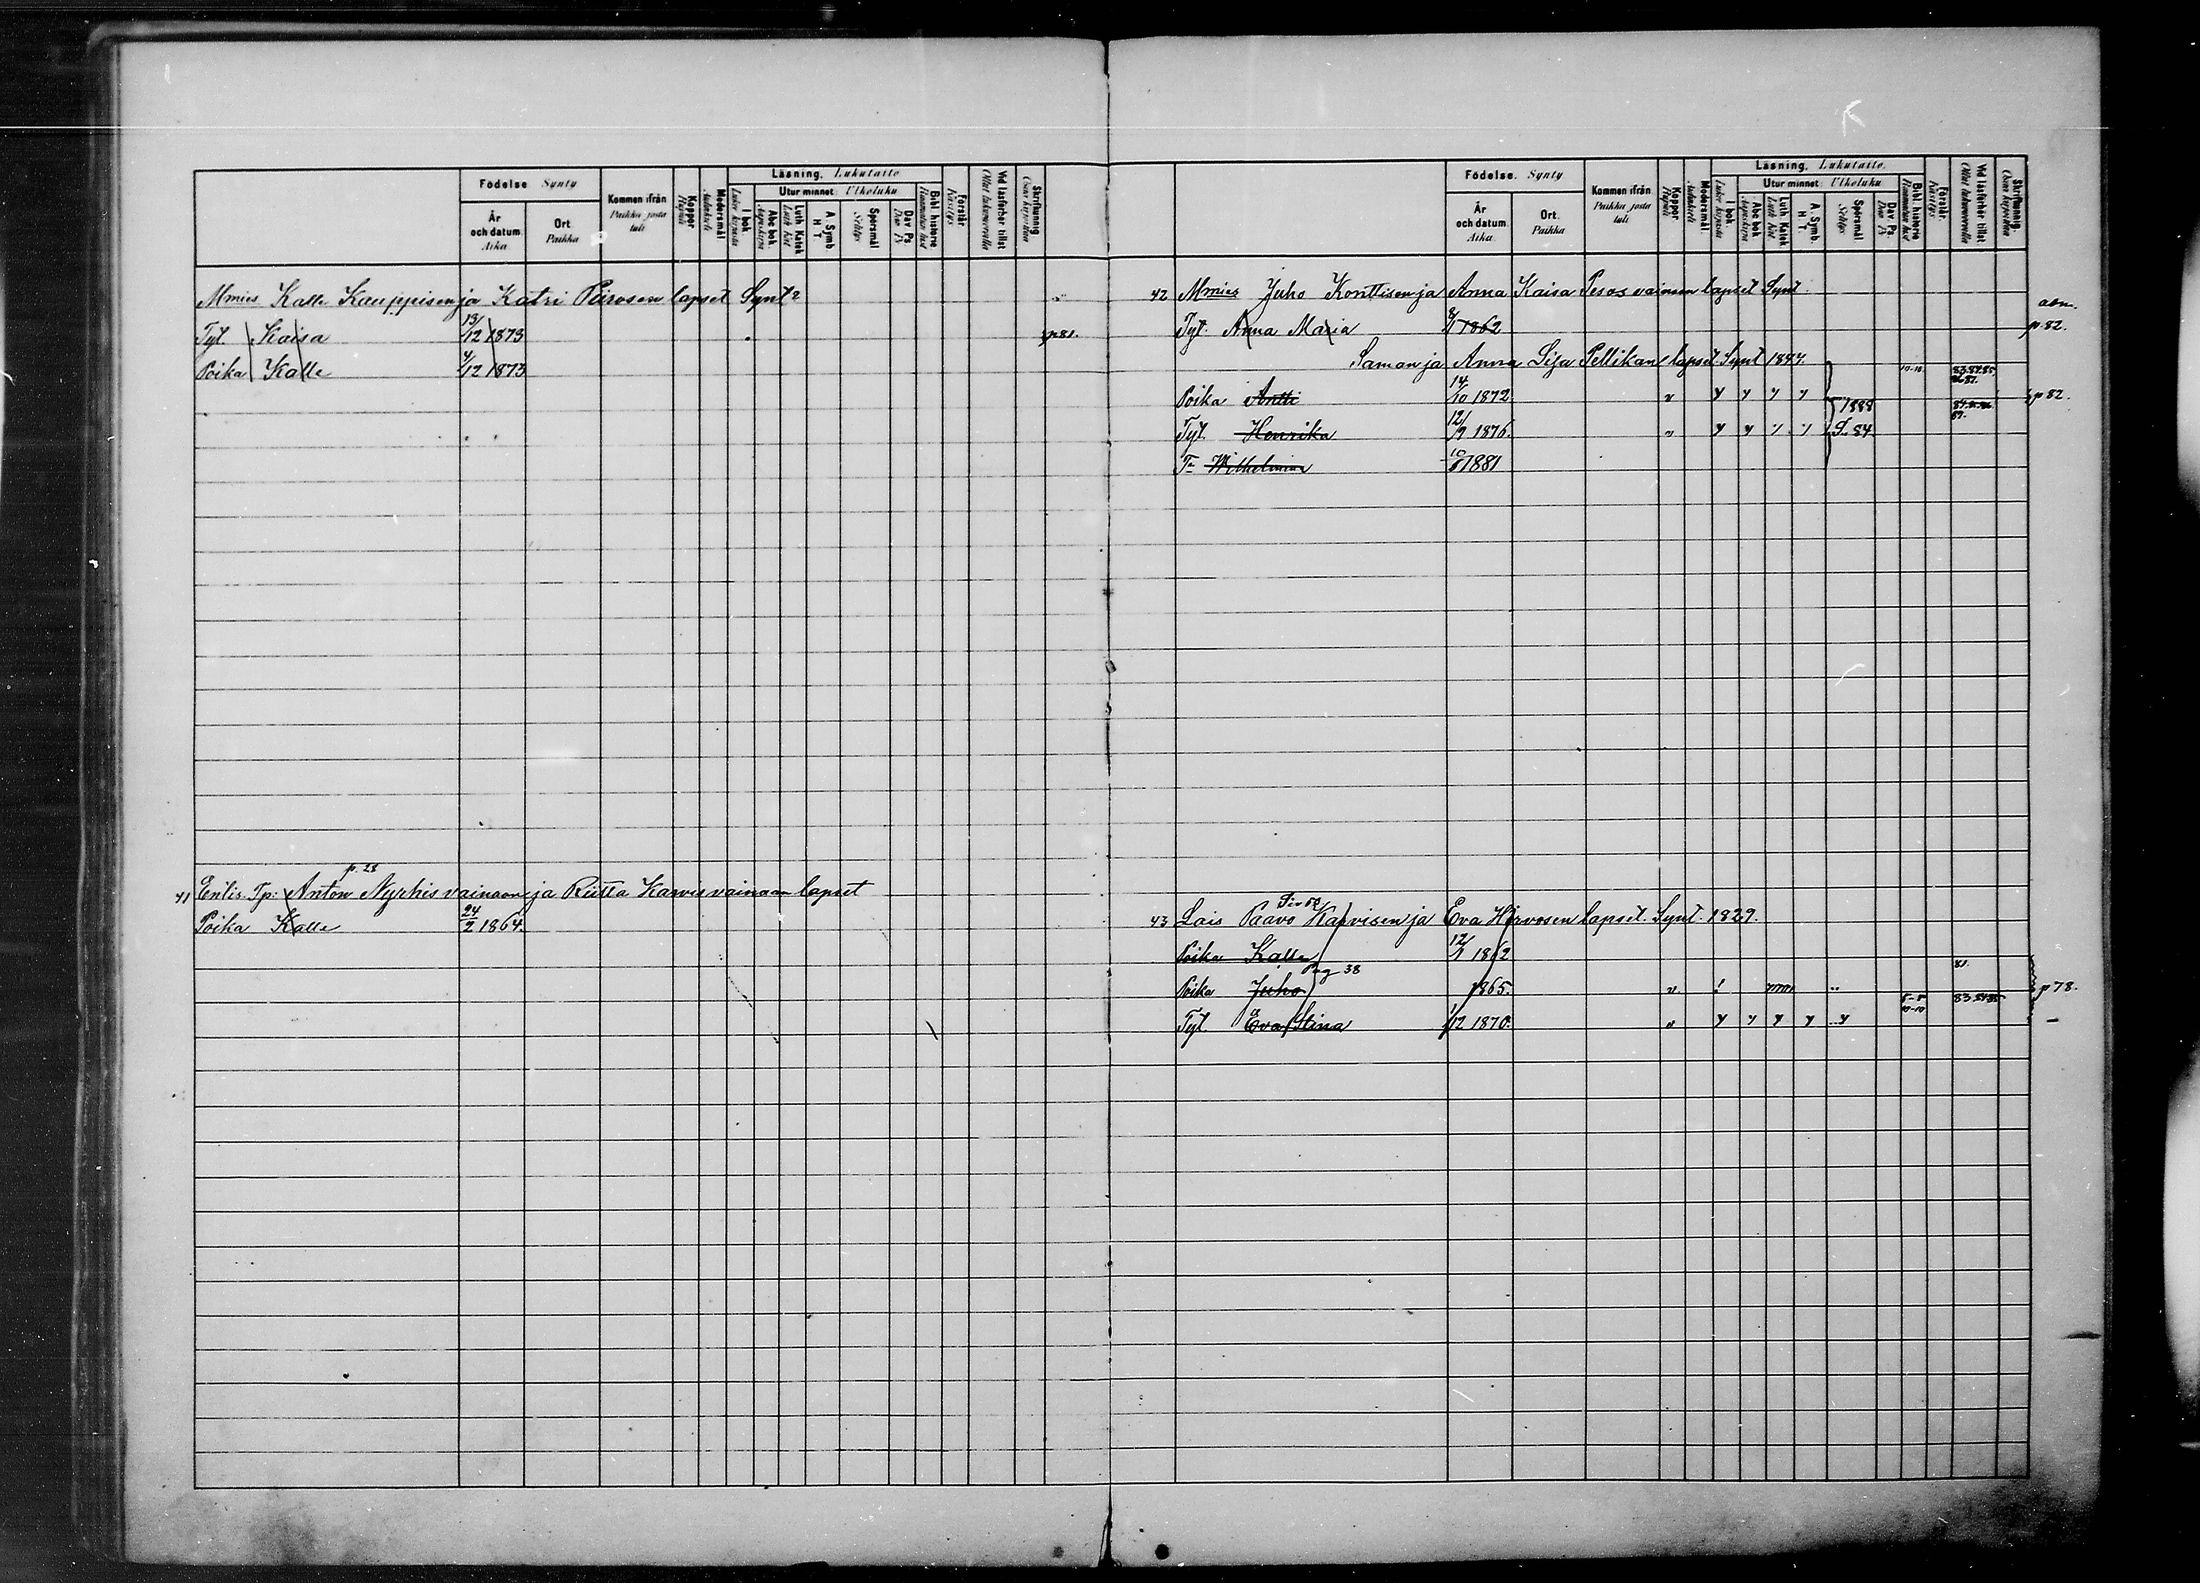 Födelse Synty
Kommen ifrån
Paikka josta tuli
Koppor
Modersmål
Läsning. Lukutaito
Utur minnet: Ulkoluku
År och datum. Aika
Ort Paikka
I bok.
Abc bok
Luth. Katek
A. Symb. H T.
Spörsmål
Dav. Ps
Bibl. historie
Förstår.
Vid läsförhör tillst.
Skriftkunnig
Mmies Kalle Kauppisen ja Katri Piirosen lapset Synt?
Tyt. Kaisa 13/12 1873 p 81.
Poika Kalle 4/12 1873
p. 28
41 Enlis. Tp: Anton Nyrhis vainaan ja Riitta Karvis vainaan lapset
Poika Kalle 24/2 1864.
Födelse. Synty
Kommen ifrån
Paikka josta tuli
Koppor
Modersmål.
Läsning, Lukutaito.
Utur minnet: Ulkoluku
År och datum Aika.
Ort. Paikka
I bok.
Abc bok
Luth. Katek
A. Symb. H T.
Spörsmål
Dav. Ps.
Bibl. historie
Förstår.
Vid läsförhör tillst.
Skriftkunnig.
42 Mmies Juho Konttisen ja Anna Kaisa Pesos vainaan lapset Synt.
Tyt. Anna Maria 8/1 1862 p. 82.
Saman ja Anna Lisa Pellikan lapset Synt 1847.
Poika Antti 14/10 1872 v y y y y 10-10 83.84.85. 86 87. p 82.
Tyt. Henrika 12/9 1876. " y y y y 1888 S. 84
Tr Wilhelmina 1881
43 Lais Paavo Karvisen ja Eva Hirvosen lapset. Synt. 1829.
Poika Kalle 12/1 1862
Pag 38 81.
Poika Juho 1865. v. ! p 78.
Tyt. Eva Stina 1/12 1870. " y y y y y 8-8 10-10 83.84 85